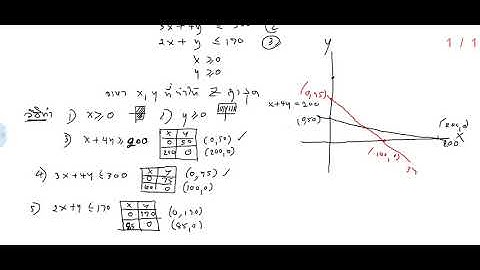 3x + 4y ≤ 300 ②
2x + y ≤ 170 ③
x ≥ 0
y ≥ 0
x, y ที่ทำให้ Z
1) x ≥ 0 2) y ≥ 0
3) x + 4y ≥ 200
x y
0 50
200 0
(0,50) ✓
(200,0)
4) 3x + 4y ≤ 300
x y
0 75
100 0
(0,75) ✓
(100,0)
5) 2x + y ≤ 170
x y
0 170
85 0
(0,170)
(85,0)
1 / 1
y
(0,75)
x + 4y = 200
(0,50)
(200,0)
x
200
(100,0)